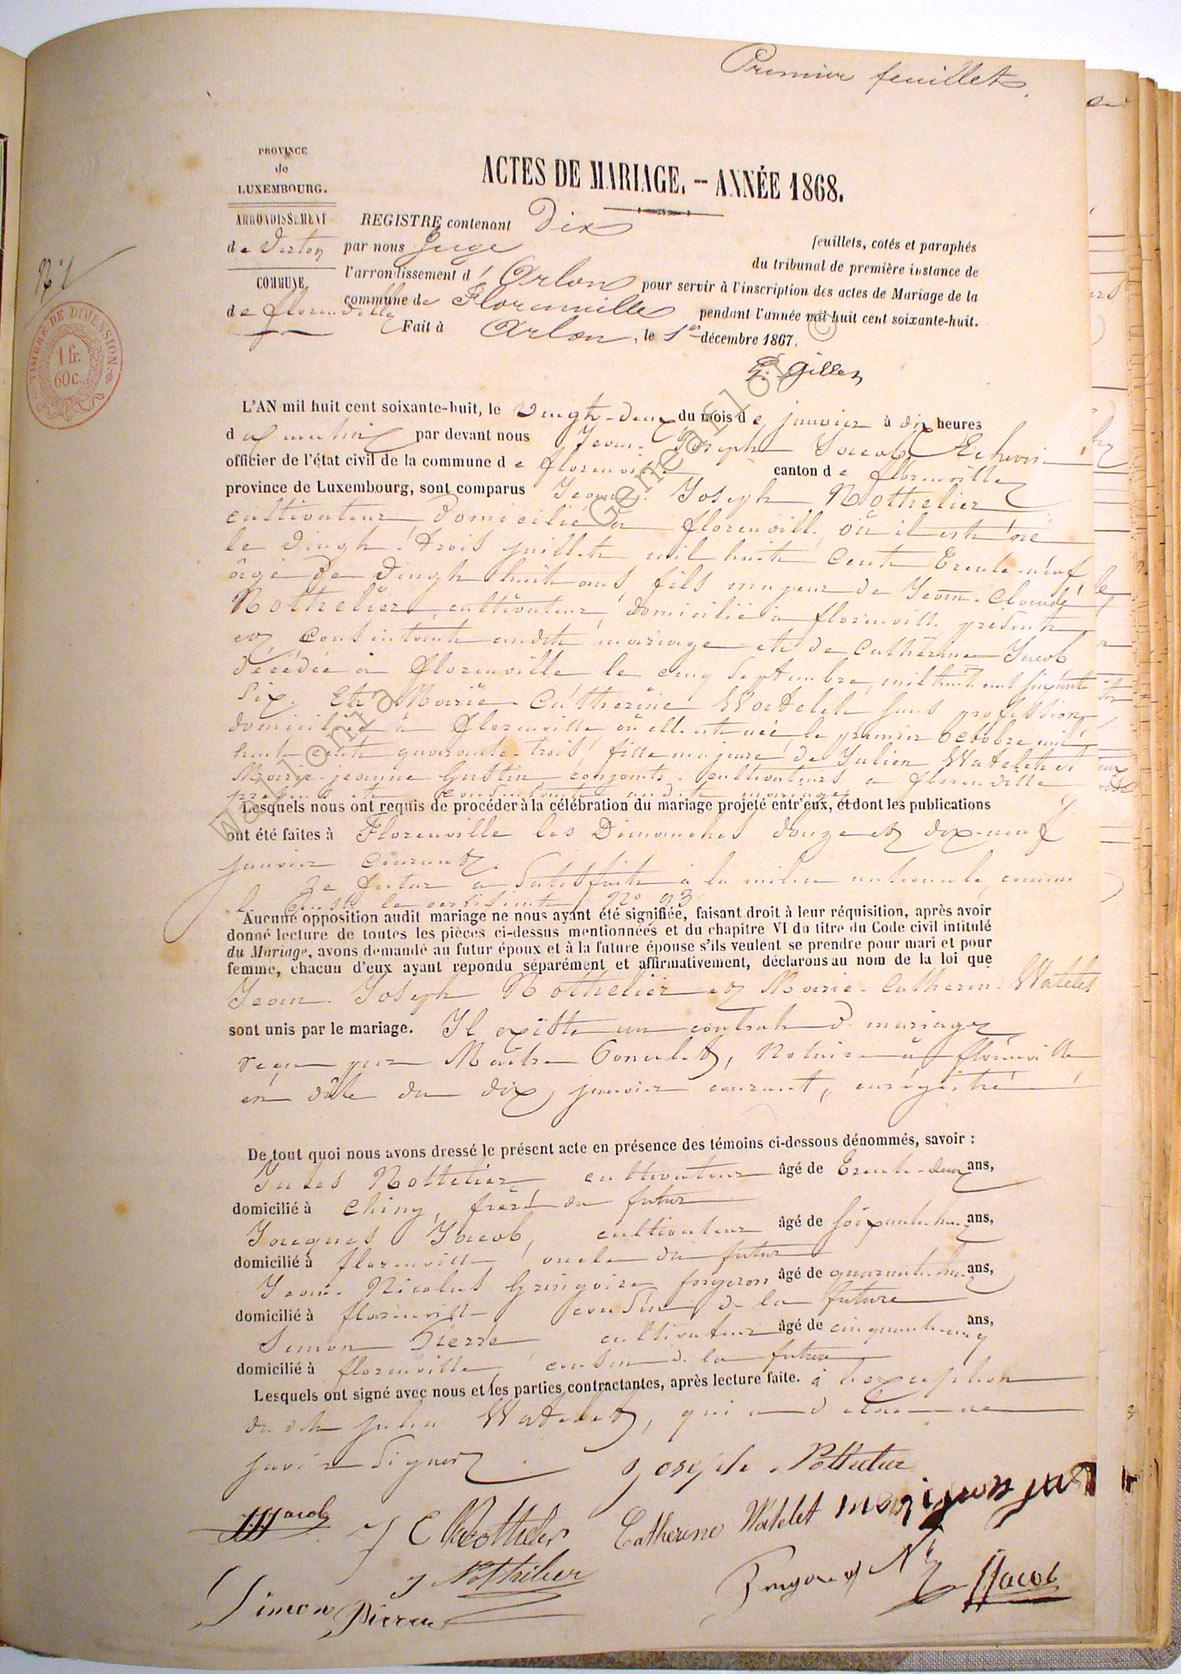 Premier feuillet.
PROVINCE
de
LUXEMBOURG.
ARRONDISSEMENT
de Virton
COMMUNE
de florenville
N° 1
TIMBRE DE DIMENSION
1 fr.
60 c.
ACTES DE MARIAGE. -- ANNÉE 1868.
REGISTRE contenant Dix feuillets, cotés et paraphés
par nous Juge du tribunal de première instance de
l'arrondissement d'Arlon pour servir à l'inscription des actes de Mariage de la
commune de Florenville pendant l'année mil huit cent soixante-huit.
Fait à Arlon, le 1er décembre 1867.
L'AN mil huit cent soixante-huit, le vingt-deux du mois de janvier à dix heures
du matin par devant nous Jean Joseph Jacob Echevin
officier de l'état civil de la commune de florenville canton de florenville
province de Luxembourg, sont comparus Jean Joseph Nothelier
cultivateur, domicilié à florenville, où il est né
le vingt-trois juillet mil huit cent trente-neuf
âgé de vingt huit ans, fils majeur de Jean-Claude
Nothelier, cultivateur, domicilié à florenville, présent
et consentant audit mariage et de Catherine Jacob
décédée à florenville le cinq septembre mil huit cent soixante
six. Et Marie-Catherine Watelet sans profession
domiciliée à florenville où elle est née le premier octobre mil
huit cent quarante-trois, fille majeure de Julien Watelet et
Marie-jeanne Gustin, conjoints, cultivateurs à florenville
présents et consentants audit mariage
Lesquels nous ont requis de procéder à la célébration du mariage projeté entr'eux, et dont les publications
ont été faites à Florenville les Dimanches douze et dix-neuf
janvier courant.
Le futur a satisfait à la milice nationale, comme
le certificat N° 93
Aucune opposition audit mariage ne nous ayant été signifiée, faisant droit à leur réquisition, après avoir
donné lecture de toutes les pièces ci-dessus mentionnées et du chapitre VI du titre du Code civil intitulé
du Mariage, avons demandé au futur époux et à la future épouse s'ils veulent se prendre pour mari et pour
femme, chacun d'eux ayant repondu séparément et affirmativement, déclarons au nom de la loi que
Jean Joseph Nothelier et Marie-Catherine Watelet
sont unis par le mariage. Il existe un contrat de mariage
reçu par Maître notaire à florenville
en date du dix janvier courant, enregistré
De tout quoi nous avons dressé le présent acte en présence des témoins ci-dessous dénommés, savoir :
Jules Nothelier cultivateur âgé de trente-deux ans,
domicilié à Chiny, frère du futur
Jacques Jacob, cultivateur âgé de ans,
domicilié à florenville oncle du futur
Jean Nicolas Gringoire forgeron âgé de ans,
domicilié à florenville cousin de la future
Simon Pierre cultivateur âgé de cinquante cinq ans,
domicilié à florenville, cousin de la future
Lesquels ont signé avec nous et les parties contractantes, après lecture faite. à l'exception
dudit Julien Watelet, qui a déclaré ne
savoir signer.
Joseph Nothelier
JJ Jacob J C Nothelier Catherine Watelet
J Nothelier J Jacob
Simon Pierre
Wallonia © Genealor